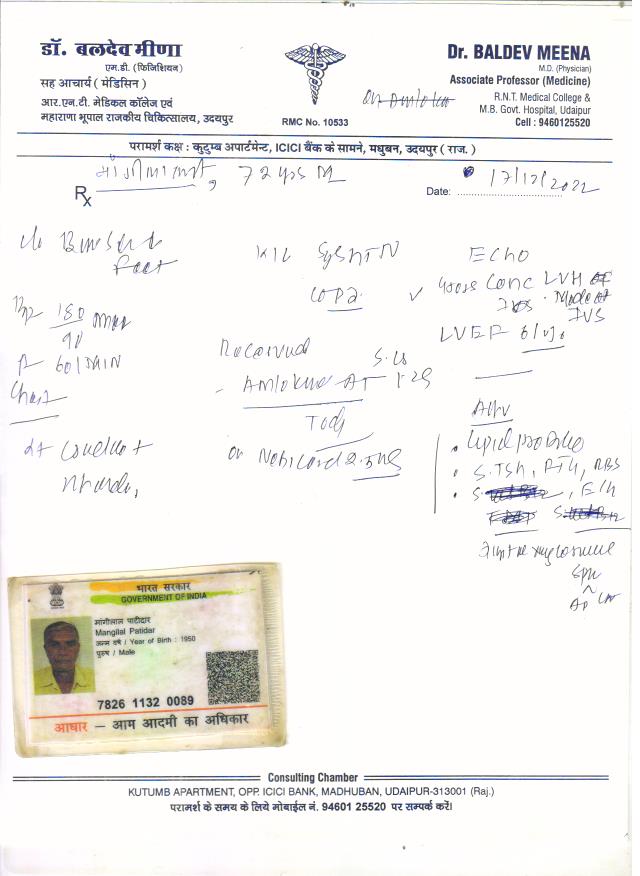 डॉ. बलदेव मीणा
एम.डी. (फिजिशियन)
सह आचार्य ( मेडिसिन )
आर.एन.टी. मेडिकल कॉलेज एवं
महाराणा भूपाल राजकीय चिकित्सालय, उदयपुर
RMC No. 10533
Dr. BALDEV MEENA
M.D. (Physician)
Associate Professor (Medicine)
R.N.T. Medical College &
M.B. Govt. Hospital, Udaipur
Cell : 9460125520
परामर्श कक्ष : कुटुम्ब अपार्टमेन्ट, ICICI बैंक के सामने, मधुबन, उदयपुर ( राज. )
Rx 72 yrs M
Date: 17/12/2022
BP 180/90 mmHg
P 60/MIN
Chest
K/C SysHTN
COPD
S. Cr
1.25
Today
on Nebicard 2.5mg
ECHO
Conc LVH
IVS
LVEF 61%
Adv
Lipid profile
S.TSH, PTH, RBS
भारत सरकार
GOVERNMENT OF INDIA
मांगीलाल पाटीदार
Mangilal Patidar
जन्म वर्ष / Year of Birth : 1950
पुरुष / Male
7826 1132 0089
आधार – आम आदमी का अधिकार
Consulting Chamber
KUTUMB APARTMENT, OPP. ICICI BANK, MADHUBAN, UDAIPUR-313001 (Raj.)
परामर्श के समय के लिये मोबाईल नं. 94601 25520 पर सम्पर्क करें।